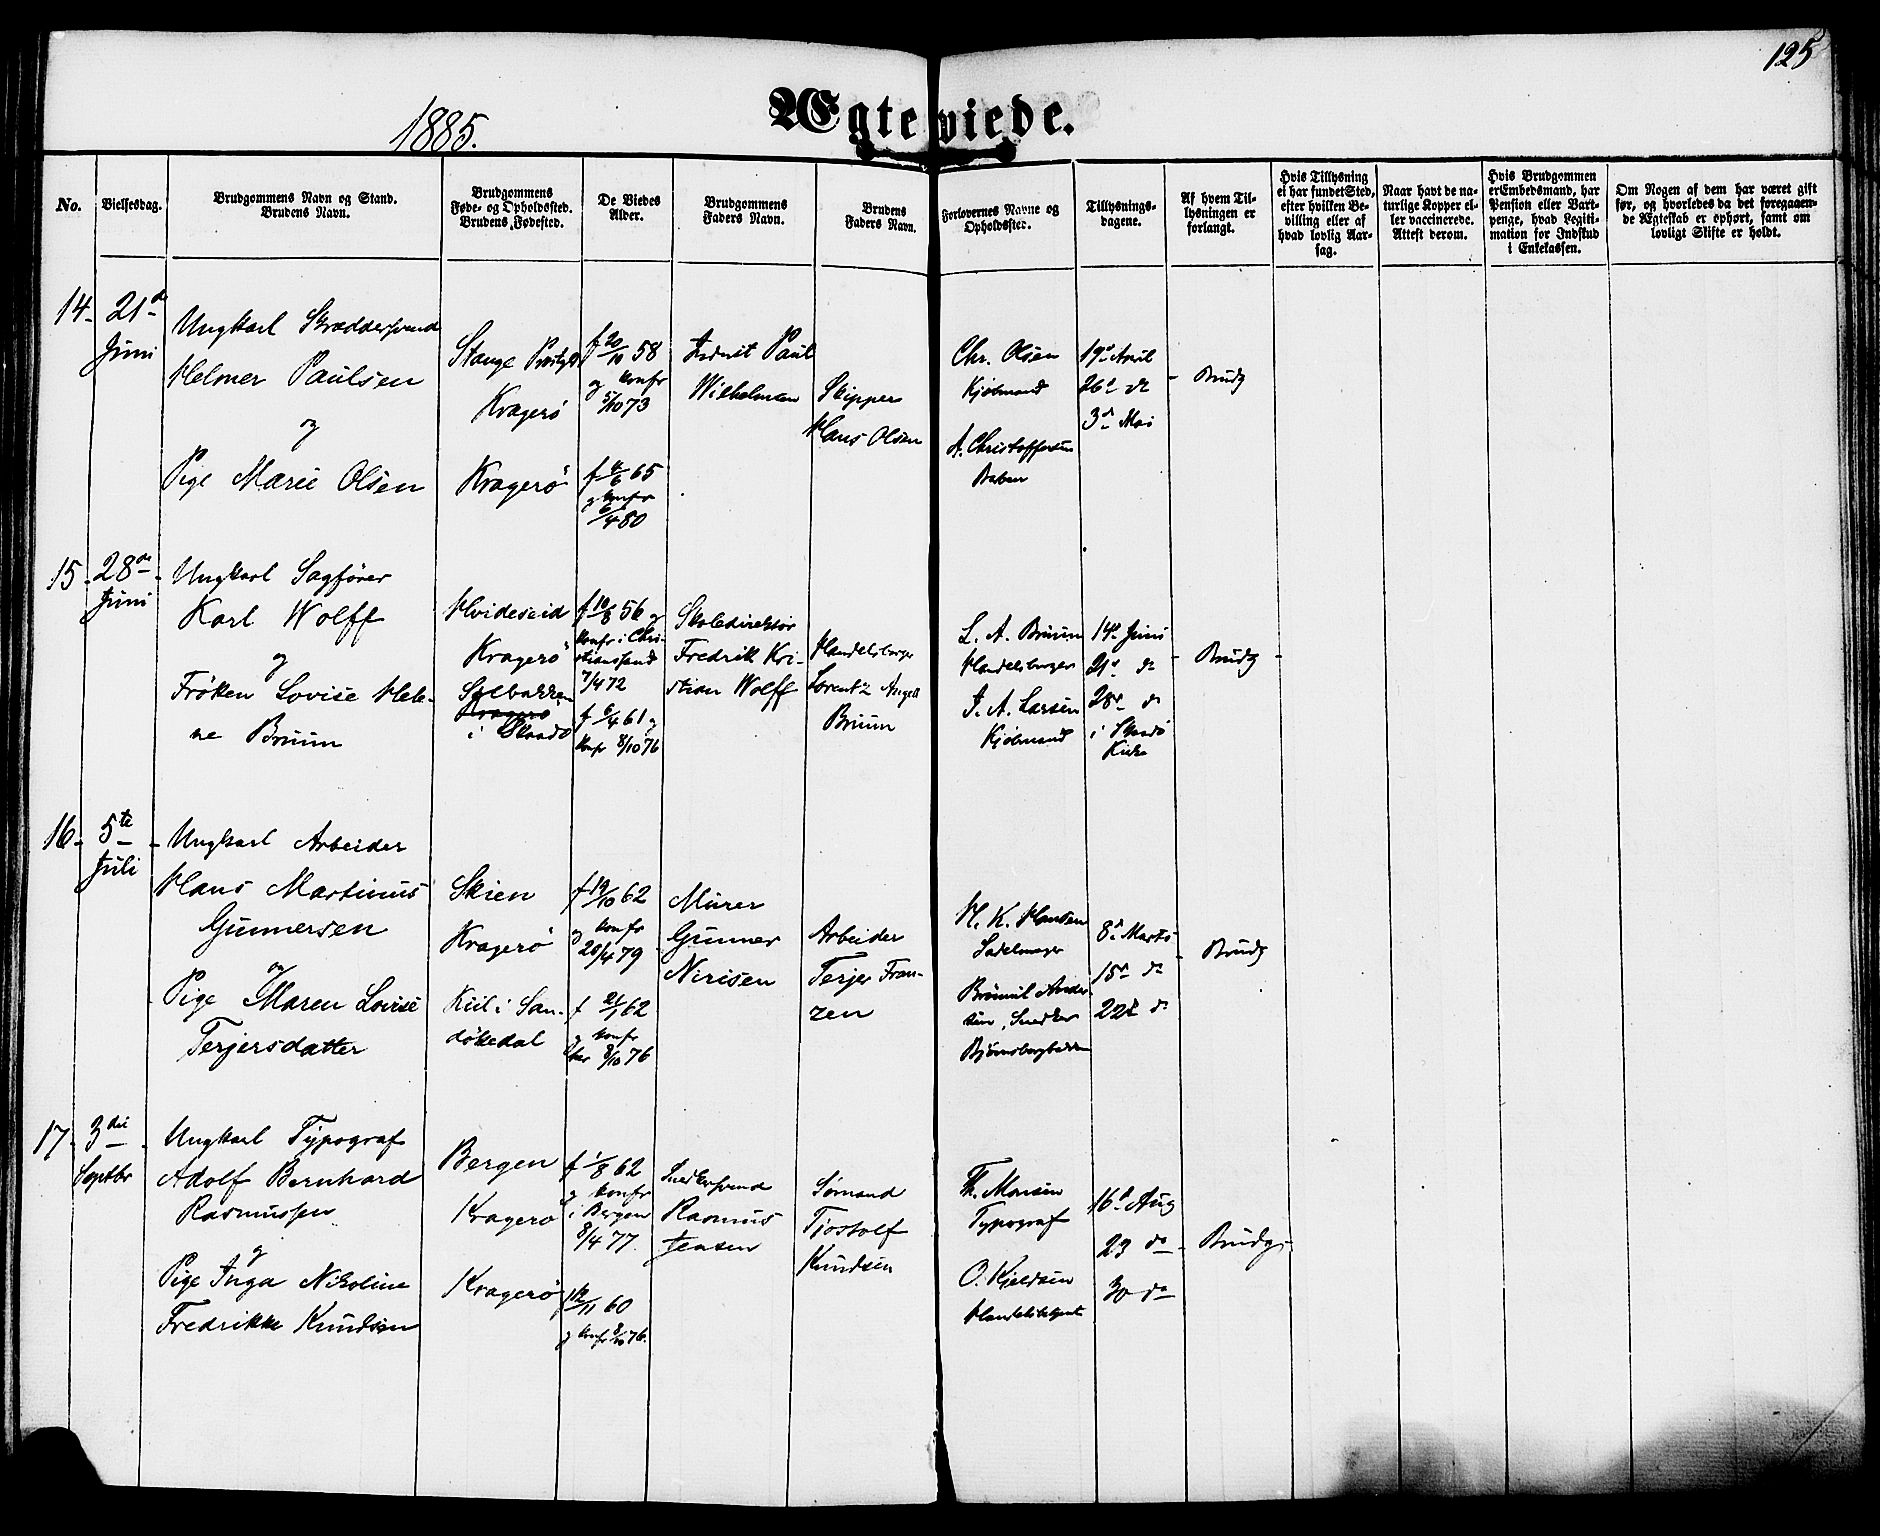 125
1885.
Ægteviede.
No.
Vielsesdag.
Brudgommens Navn og Stand.
Brudens Navn.
Brudgommens
Føde- og Opholdssted.
Brudens Fødested.
De Viedes
Alder.
Brudgommens
Faders Navn.
Brudens
Faders Navn.
Forlovernes Navne og
Opholdssted.
Tillysnings-
dagene.
Af hvem Til-
lysningen er
forlangt.
Hvis Tillysning
ei har fundet Sted,
efter hvilken Be-
villing eller af
hvad lovlig Aar-
sag.
Naar havt de na-
turlige Kopper el-
ler vaccinerede.
Attest derom.
Hvis Brudgommen
er Embedsmand, har
Pension eller Vart-
penge, hvad Legiti-
mation for Indskud
i Enkekassen.
Om Nogen af dem har været gift
før, og hvorledes da det foregaaen-
de Ægteskab er ophørt, samt om
lovligt Skifte er holdt.
14- 21de
Juni
Ungkarl Skræddersvend
Helmer Paulsen
og
Pige Marie Olsen
Stange
Kragerø
Kragerø
f 20/10 58
og konfr
5/10 73
f 4/6 65
og konfr
6/4 80
Paul
Wilhelmsen
Skipper
Hans Olsen
Chr. Olsen
Kjøbmand
A. Christoffersen
19d April
26d do
3d Mai
- Brudg
15- 28de -
Juni
Ungkarl Sagfører
Karl Wolff
og
Frøken Lovise Hele-
ne Bruun
Hvideseid
Kragerø
Kragerø
i Skaadø
f 10/8 56 og
konfr i Chri-
stianssand
7/4 72
f 6/4 61 og
konfr 8/10 76
Skoledirektør
Fredrik Kri-
stian Wolff
Handelsborger
Lorentz Angell
Bruun
L. A. Bruun
Handelsborger
J. A. Larsen
Kjøbmand
14d Juni
21d do
28d do
i Skaadø
Kirke
- Brudg -
16- 5te -
Juli
Ungkarl Arbeider
Hans Martinus
Gunnersen
og
Pige Maren Lovise
Terjersdatter
Skien
Kragerø
Kiil i San-
døkedal
f 19/10 62
og konfr
20/4 79
f 21/1 62
og konfr
her 8/10 76
Murer
Gunner
Nirisen
Arbeider
Terjer Fran-
zen
H. K. Hansen
Sadelmager
Ander-
sen, Snedker
8d Marts
15d do
22d do
- Brudg
17- 3die -
Septbr
Ungkarl Typograf
Adolf Bernhard
Rasmussen
og
Pige Inga Nikoline
Fredrikke Knudsen
Bergen
Kragerø
Kragerø
f 1/8 62
og konfr
i Bergen
8/4 77.
f 12/11 60
og konfr 8/10 76.
Snedkersvend
Rasmus
Jensen
Sømand
Tjostolf
Knudsen
Th. Monsen
Typograf
O. Kjeldsen
16d Aug
23 do
30 do
- Brudg -